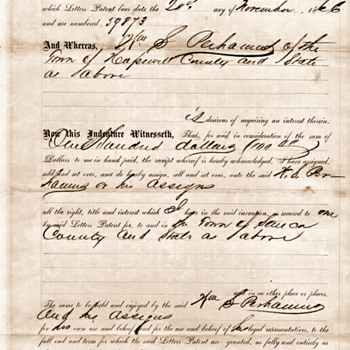 which Letters Patent bear date the 20th day of November 1866
and are numbered, 59873
And Whereas, Wm S Pechamus of the
Town of County and State
as above
is desirous of acquiring an interest therein.
Now this Indenture Witnesseth, That, for and in consideration of the sum of
One Hundred dollars (100
Dollars to me in hand paid, the receipt whereof is hereby acknowledged, I have assigned,
sold and set over, and do hereby assign, sell and set over, unto the said
or his assigns
all the right, title and interest which I have in the said invention, as secured to me
by said Letters Patent for, to and in the Town of Seneca
County and State as above
and in no other place or places.
The same to be held and enjoyed by the said Wm S Pechamus
And his Assigns
for his own use and behoof and for the use and behoof of his legal representatives, to the
full end and term for which the said Letters Patent are granted, as fully and entirely as